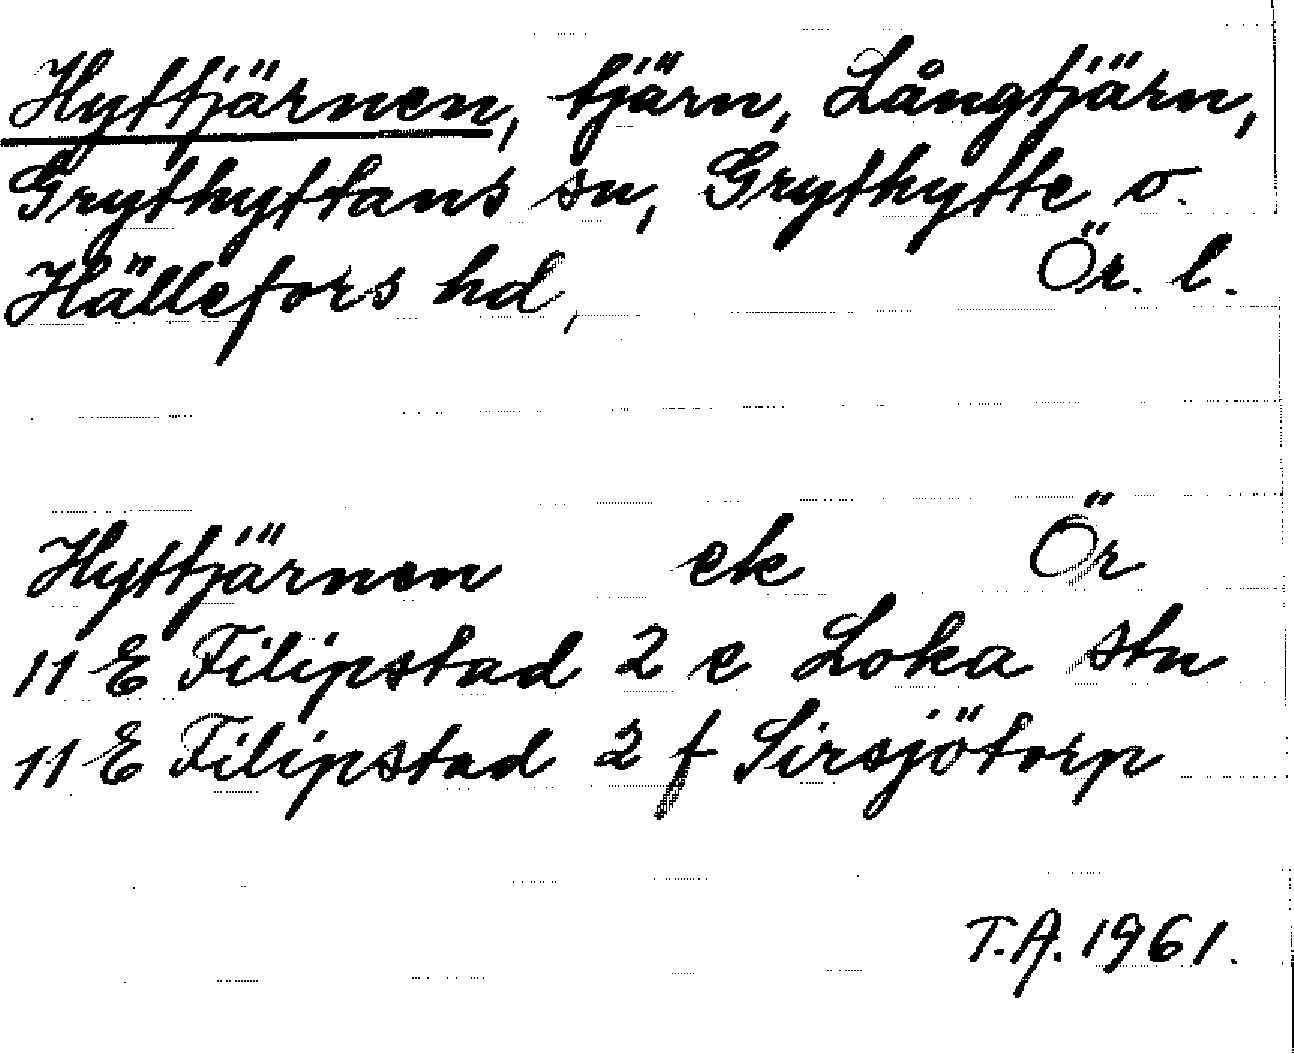 Hyttjärnen, tjärn, Långtjärn,
Grythyttans sn, Grythytte o.
Hällefors hd, Ör. l.
Hyttjärnen ek Ör
11 E Filipstad 2 e Loka stn
11 E Filipstad 2 f Sirsjötorp
T.A. 1961.